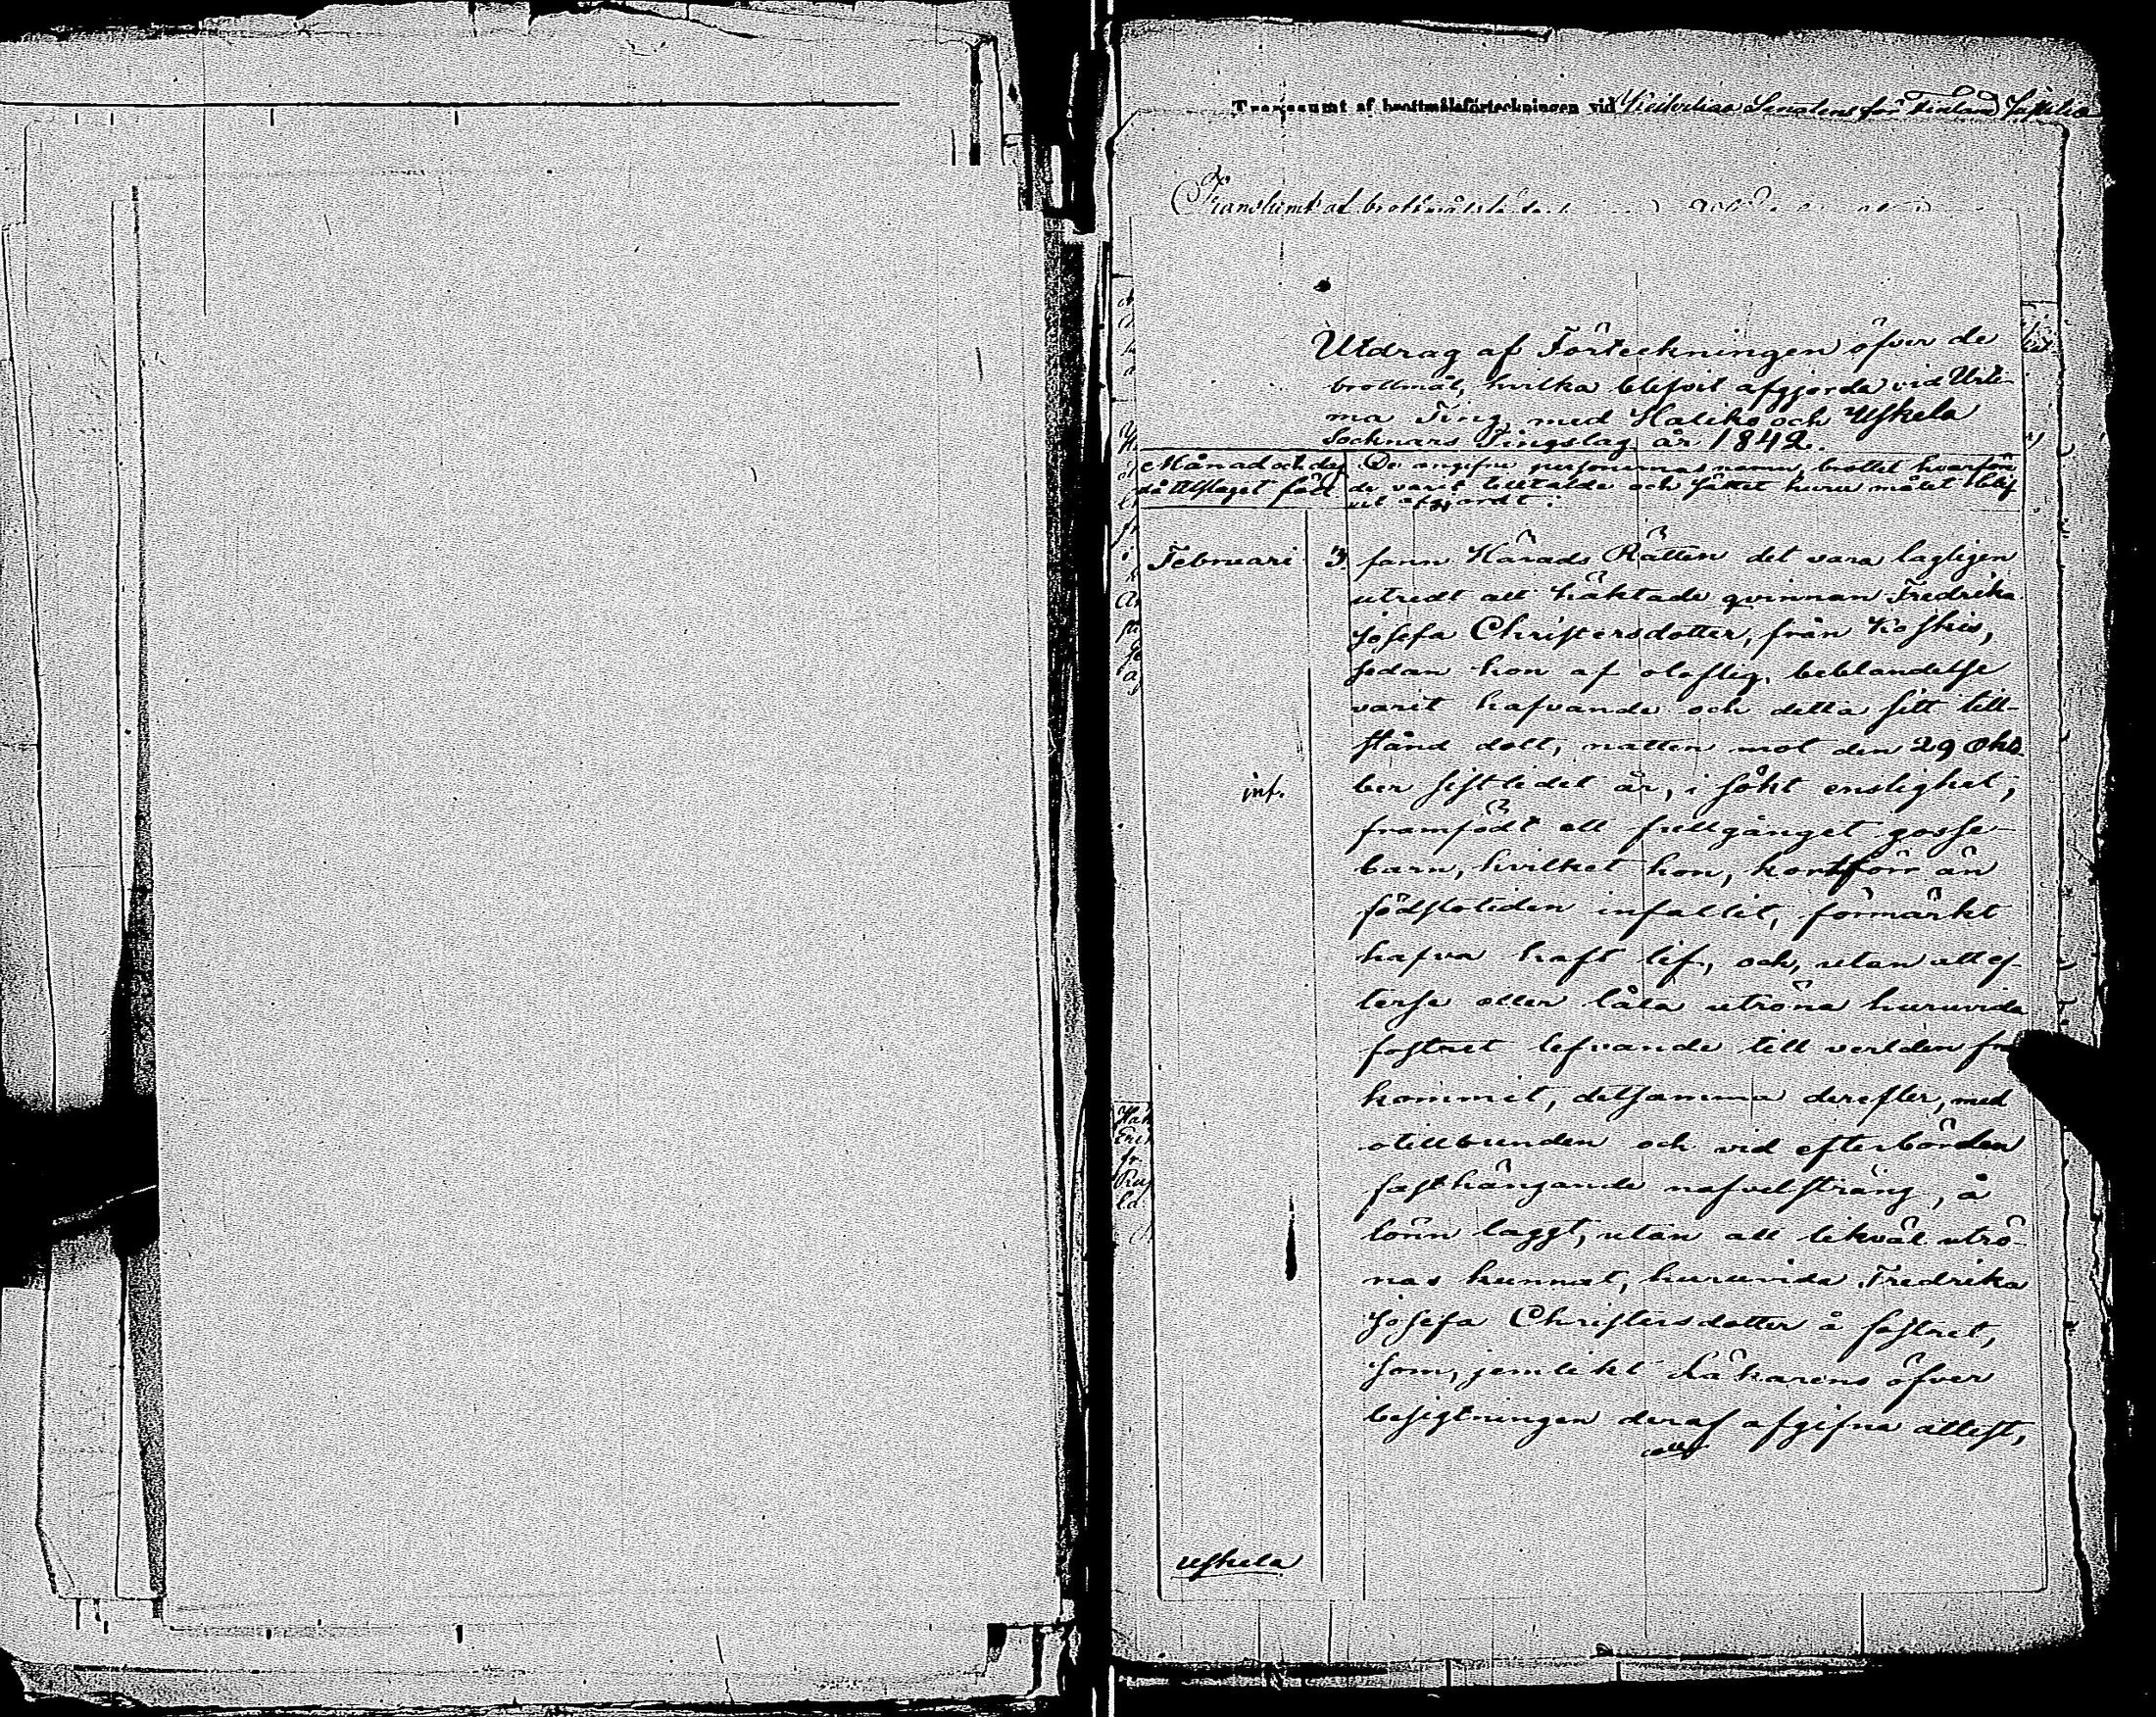 Transsumt af brottmålsförteckningen vid Keiserliga Senatens för Finland Justitie
Transsumt af
Utdrag af Förteckningen öfver de
brottmål, hvilka blifvit afgjorda vid Urti-
ma Ting med Haliko och Uskela
Socknars Tingslag år 1842.
Månad och dag
då utslaget fält
De angifne personernas namn, brottet hvarföre
de varit tilltalde och sättet huru målet blif-
vit afgjordt:
Februari 3.
fann Härads Rätten det vara lagligen
utredt att häktade qvinnan Fredrika
Josefa Christersdotter, från Koskis,
sedan hon af oloflig beblandelse
varit hafvande och detta sitt till-
stånd dolt, natten mot den 29 Okto-
inf.
ber sistledet år, i sökt enslighet,
framfödt ett fullgånget gosse-
barn, hvilket hon, kort förr än
födslotiden infallit, förmärkt
hafva haft lif, och, utan att ef-
terse eller låta utröna huruvida
fostret lefvande till verlden
kommit, detsamma derefter, med
otillbunden och vid efterbörden
fasthängande nafvelsträng, å
lönn laggt, utan att likväl utrö-
nas kunnat, huruvida Fredrika
Josefa Christersdotter å fostret,
som, jemlikt Läkarens öfver
besigtningen deraf afgifna attest,
Uskela